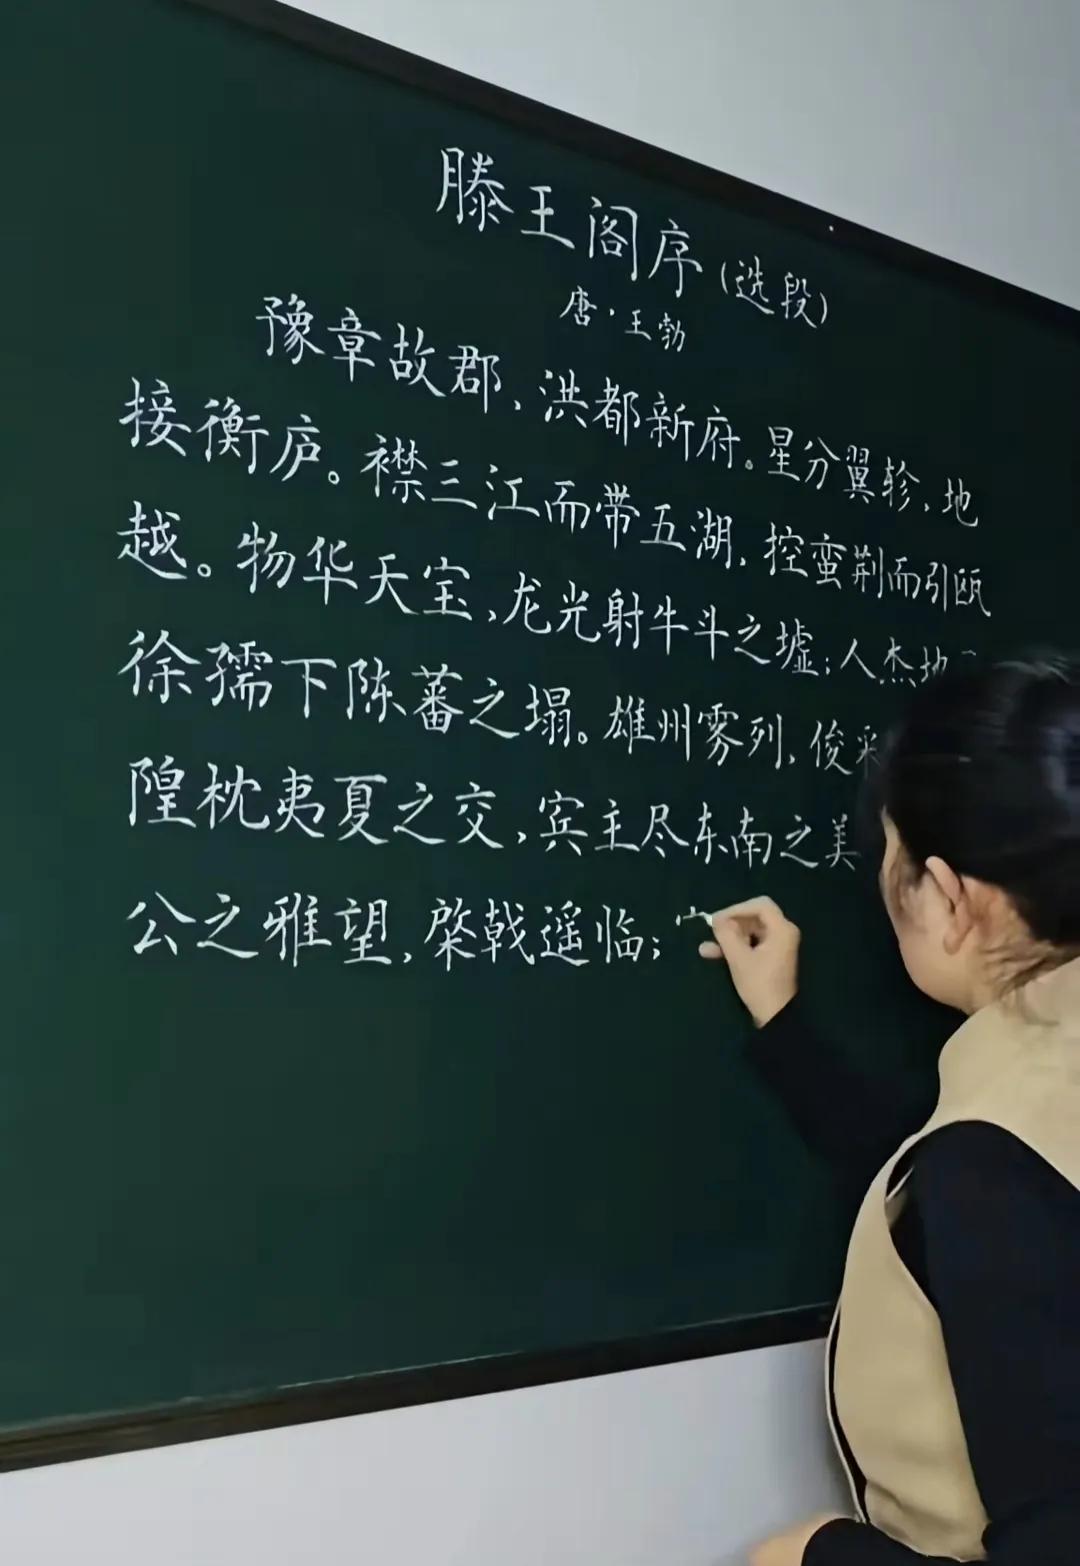 滕王阁序(选段)
唐·王勃
豫章故郡,洪都新府。星分翼轸,地
接衡庐。襟三江而带五湖,控蛮荆而引瓯
越。物华天宝,龙光射牛斗之墟;人杰地
徐孺下陈蕃之塌。雄州雾列,俊采
隍枕夷夏之交,宾主尽东南之美
公之雅望,棨戟遥临;